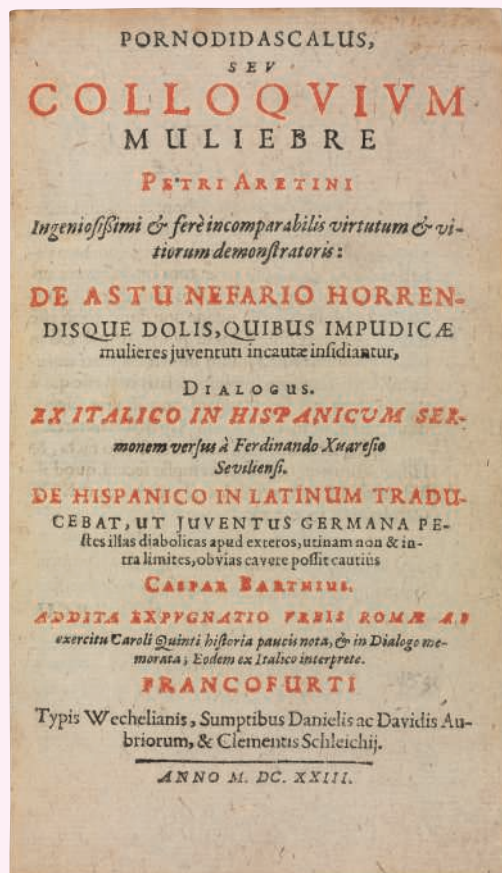 PORNODIDASCALUS,
SEV
COLLOQVIVM
MULIEBRE
PETRI ARETINI
Ingeniosißimi & ferè incomparabilis virtutum & vi-
tiorum demonstratoris:
DE ASTU NEFARIO HORREN-
DISQUE DOLIS, QUIBUS IMPUDICÆ
mulieres juventuti incautæ insidiantur,
DIALOGUS.
EX ITALICO IN HISPANICVM SER-
monem versus à Ferdinando Xuaresio
Seviliensi.
DE HISPANICO IN LATINUM TRADU-
CEBAT, UT JUVENTUS GERMANA PE-
stes illas diabolicas apud exteros, utinam non & in-
tra limites, obvias cavere possit cautiùs
CASPAR BARTHIUS.
ADDITA EXPVGNATIO VRBIS ROMÆ AB
exercitu Caroli Quinti historia paucis nota, & in Dialogo me-
morata; Eodem ex Italico interprete.
FRANCOFURTI
Typis Wechelianis, Sumptibus Danielis ac Davidis Au-
briorum, & Clementis Schleichij.
ANNO M. DC. XXIII.